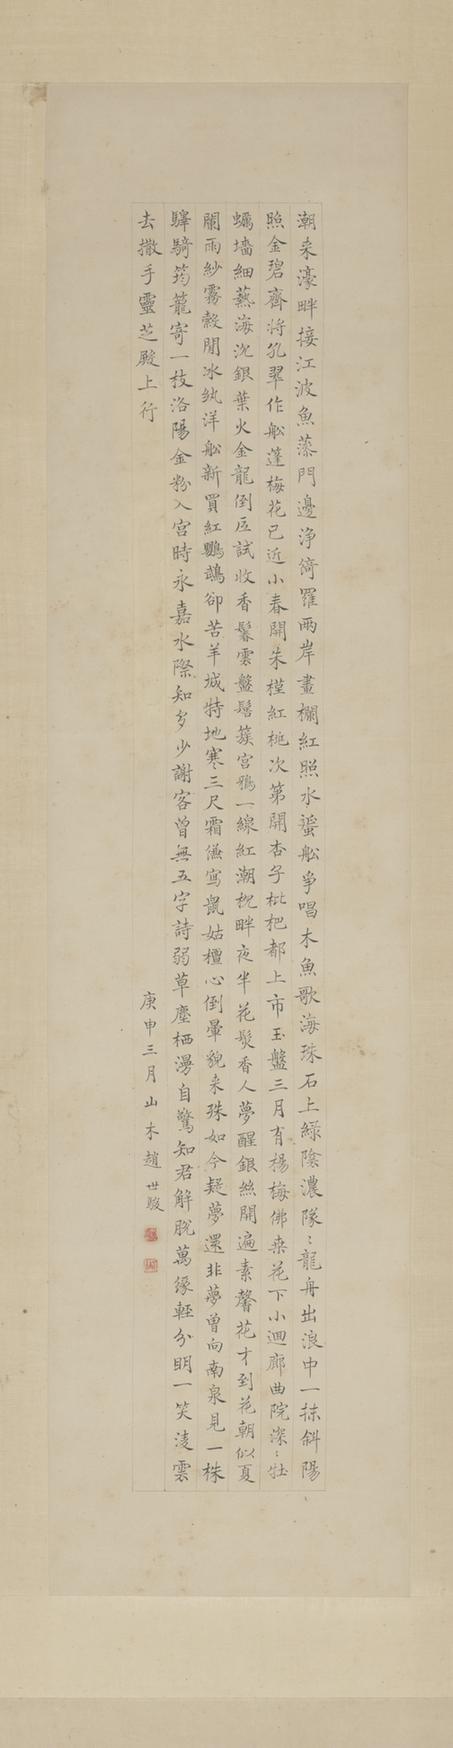 潮来濠畔接江波魚藻門邊淨綺羅兩岸畫欄紅照水蜑船爭唱木魚歌海珠石上綠陰濃隊〻龍舟出浪中一抹斜陽
照金碧齊將孔翠作船蓬梅花已近小春開朱槿紅桃次第開杏子枇杷都上市玉盤三月有楊梅佛桑花下小迴廊曲院深〻牡
蠣墻細爇海沈銀葉火金龍倒匹試收香鬈雲盤髻簇宮鴉一線紅潮枕畔夜半花鬚香人夢醒銀絲開遍素馨花才到花朝似夏
闌雨紗霧縠間冰紈洋船新買紅鸚鵡卻苦羊城特地寒三尺霜縑寫鼠姑檀心倒暈貌来殊如今疑夢還非夢曾向南泉見一株
驛騎筠籠寄一枝洛陽金粉入宮時永嘉水際知多少謝客曾無五字詩弱草塵栖漫自驚知君解脫萬緣輕分明一笑淩雲
去撒手靈芝殿上行
庚申三月山木趙世駿